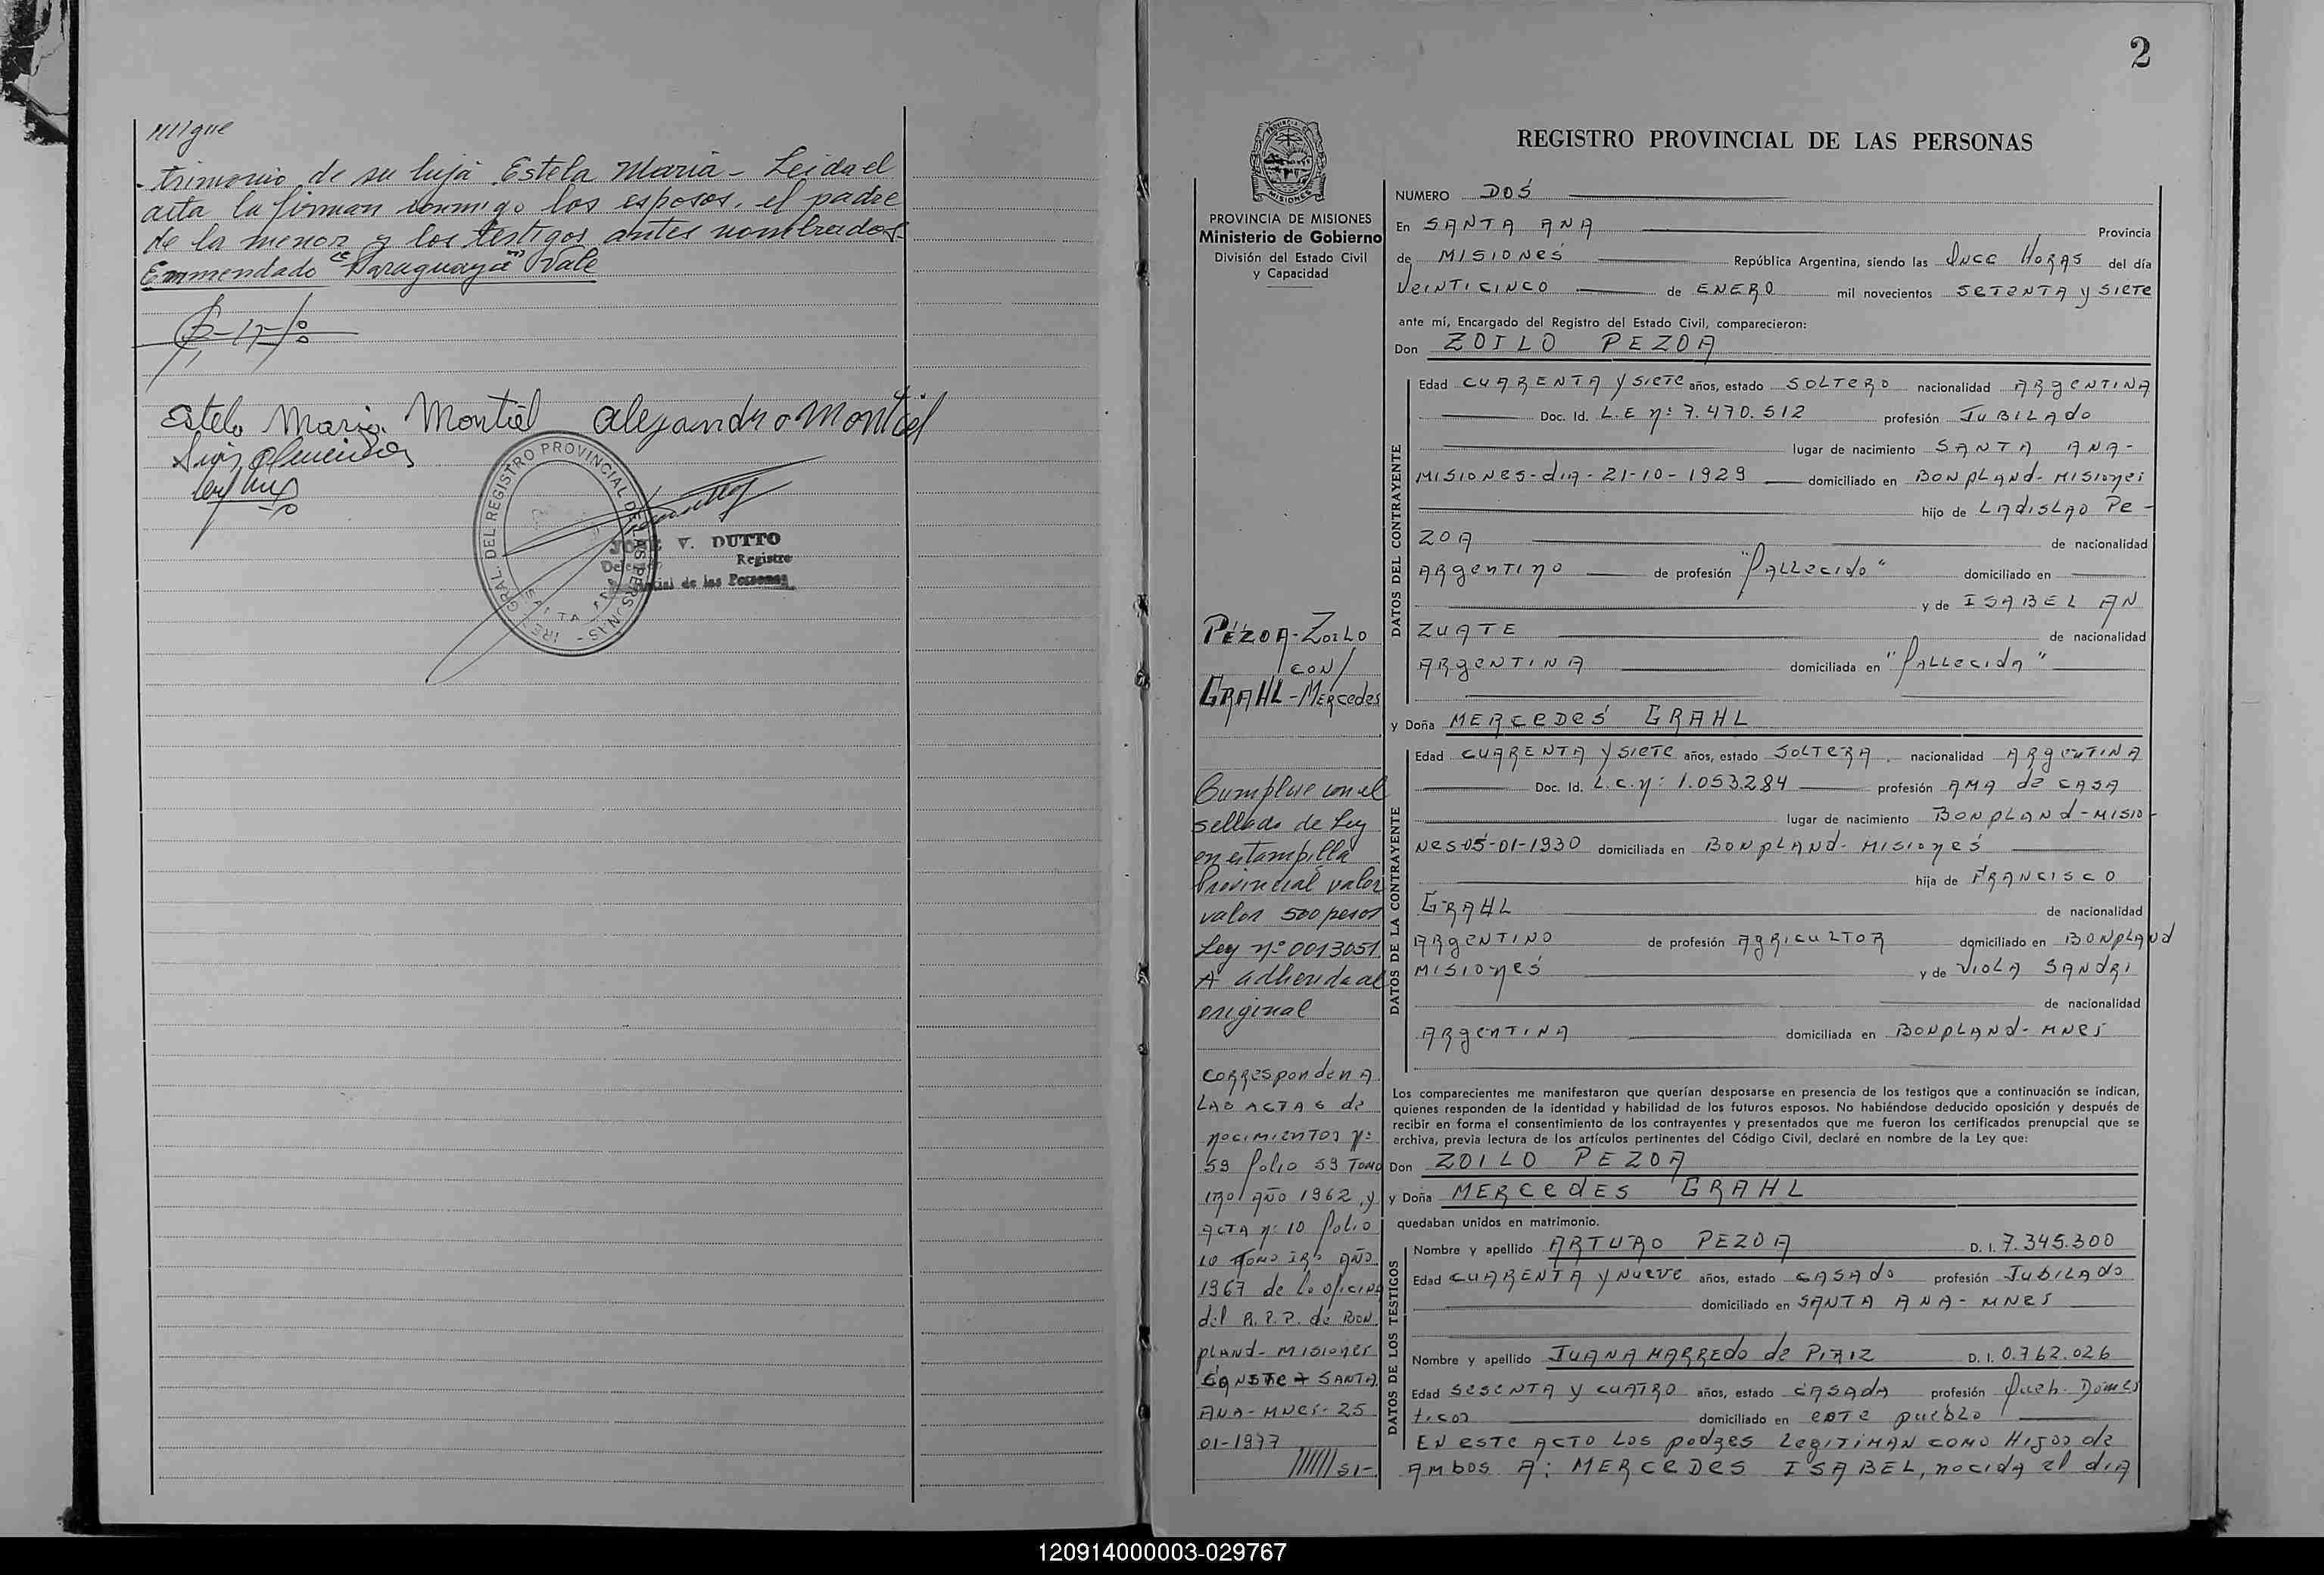 trimonio de su hija Estela Maria - Leida el
acta la firman conmigo los esposos, el padre
de la menor y los testigos antes nombrados-
Emmendado "Paraguaya" Vale
Estela Maria Montiel Alejandro Montiel
GRAL. DEL REGISTRO PROVINCIAL DE LAS PERSONAS
JOSE V. DUTTO
Registro
Provincial de las Personas
2
REGISTRO PROVINCIAL DE LAS PERSONAS
PROVINCIA DE MISIONES
Ministerio de Gobierno
División del Estado Civil
y Capacidad
NUMERO DOS
En SANTA ANA Provincia
de MISIONES República Argentina, siendo las Once HORAS del día
VEINTICINCO de ENERO mil novecientos SETENTA y SIETE
ante mí, Encargado del Registro del Estado Civil, comparecieron:
Don ZOILO PEZOA
DATOS DEL CONTRAYENTE
Edad CUARENTA y SIETE años, estado SOLTERO nacionalidad ARGENTINA
Doc. Id. L.E nº 7.470.512 profesión JUBILADO
lugar de nacimiento SANTA ANA-
MISIONES-dia-21-10-1929 domiciliado en BONPLAND-MISIONES
hijo de LADISLAO PE-
ZOA de nacionalidad
ARGENTINO de profesión "FALLECIDO" domiciliado en
y de ISABEL AN
ZUATE de nacionalidad
ARGENTINA domiciliada en "FALLECIDA"
PEZOA-ZOILO
/CON/
GRAHL-MERCEDES
y Doña MERCEDES GRAHL
DATOS DE LA CONTRAYENTE
Edad CUARENTA y SIETE años, estado SOLTERA. nacionalidad ARGENTINA
Doc. Id. L.C.nº: 1.053.284 profesión AMA de CASA
lugar de nacimiento BONPLAND-MISIO-
NES-05-01-1930 domiciliada en BONPLAND-MISIONES
hija de FRANCISCO
GRAHL de nacionalidad
ARGENTINO de profesión AGRICULTOR domiciliado en BONPLAND
MISIONES y de VIOLA SANDRI
de nacionalidad
ARGENTINA domiciliada en BONPLAND-MNES
Cumplese con el
sellado de Ley
en estampilla
Provincial valor
valor 500 pesos
Ley nº 0013051
A adherida al
original
Los comparecientes me manifestaron que querían desposarse en presencia de los testigos que a continuación se indican,
quienes responden de la identidad y habilidad de los futuros esposos. No habiéndose deducido oposición y después de
recibir en forma el consentimiento de los contrayentes y presentados que me fueron los certificados prenupcial que se
archiva, previa lectura de los artículos pertinentes del Código Civil, declaré en nombre de la Ley que:
Don ZOILO PEZOA
y Doña MERCEDES GRAHL
quedaban unidos en matrimonio.
DATOS DE LOS TESTIGOS
Nombre y apellido ARTURO PEZOA D. I. 7.345.300
Edad CUARENTA y NUEVE años, estado CASADO profesión JUBILADO
domiciliado en SANTA ANA-MNES
Nombre y apellido JUANA MARREDO de PIRIZ D. I. 0.762.026
Edad SESENTA y CUATRO años, estado CASADA profesión Queh. Domes
ticos domiciliado en este pueblo
EN ESTE ACTO LOS padres LEGITIMAN COMO HIJOS de
AMBOS A: MERCEDES ISABEL, nacida el dia
CORRESPONDEN A
LAS ACTAS de
nacimientos nº
59 folio 59 TOMO
1ro AÑO 1962, y
ACTA nº 10 folio
10 TOMO 1RO AÑO
1967 de la oficina
del R.P.P. de BON
PLAND-MISIONES
CONSTE SANTA
ANA-MNES-25
01-1977
120914000003-029767